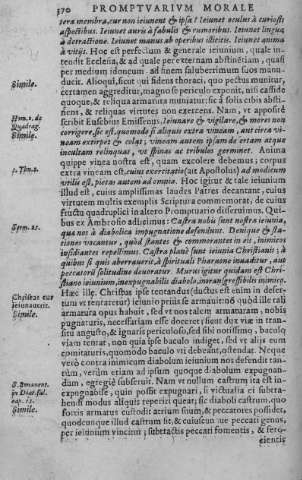 370 PROMPTVARIVM MORALE
tera membra, cur non ieiunent & ipsa? Ieiunet oculus à curiosis
aspectibus. Ieiunet auris à fabulis & rumoribus. Ieiunet lingua
à detractione. Ieiunet manus ab operibus illicitis. Ieiunet anima
à vitijs. Hoc est perfectum & generale ieiunium, quale in-
tendit Ecclesia, & ad quale per externam abstinentiam, quasi
per medium idoneum ad finem saluberrimum suos manu-
ducit. Alioqui, sicut qui fidens thoraci, quo pectus munitur,
certamen aggreditur, magno se periculo exponit, nisi casside
Simile.
quoque, & reliqua armatura muniatur: sic à solis cibis absti-
nens, & reliquas virtutes non exercens. Nam, vt appositè
scribit Eusebius Emissenus: Ieiunare & vigilare, & mores non
Hom. 1. de
Quadrag.
corrigere, sic est, quomodo si aliquis extra vineam, aut circa vi-
Simile.
neam extirpet & colat; vineam autem ipsam desertam atque
incultam relinquat, vt spinas ac tribulos germinet. Anima
quippe vinea nostra est, quam excolere debemus; corpus
extra vineam est, cuius exercitatio (ait Apostolus) ad modicum
1. Tim. 4.
vtilis est, pietas autem ad omnia. Hoc igitur & tale ieiunium
illud est, cuius amplissimas laudes Patres decantant, cuius
virtutem multis exemplis Scriptura commemorat, de cuius
fructu quadruplici in altero Promptuario disseruimus. Qui-
bus ex Ambrosio adijcimus: Castra nobis sunt nostra ieiunia,
Serm. 25.
quæ nos à diabolica impugnatione defendunt. Denique & sta-
tiones vocantur, quòd stantes & commorantes in eis, inimicos
insidiantes repellimus. Castra planè sunt ieiunia Christianis; à
quibus si quis aberrauerit, à spirituali Pharaone inuaditur, aut
peccatorū solitudine deuoratur. Murus igitur quidam est Chri-
stiano ieiunium, inexpugnabilis diabolo, intransgressibilis inimico.
Hæc ille. Christus ipse tentandus (ductus est enim in deser-
Christus cur
ieiunauerit.
tum vt tentaretur) ieiunio prius se armauit: nō quòd ille tali
Simile.
armatura opus habuit, sed vt nos talem armaturam, nobis
pugnaturis, necessariam esse doceret: sicut dux viæ in tran-
situ angusto, & ignaris periculoso, sed sibi notissimo, baculo
viam tentat, non quia ipse baculo indiget, sed vt alijs eum
comitaturis, quomodo baculo vti debeant, ostendat. Neque
verò contra inimicum diabolum ieiunium nos defendit tan-
tùm, verùm etiam ad ipsum quoque diabolum expugnan-
dum, egregiè subseruit. Nam vt nullum castrum ita est in-
expugnabile, quin possit expugnari, si victualia ei subtra-
hendi modus aliquis reperiri queat; sic diaboli castrum, quo
Simile.
fortis armatus custodit atrium suum, & peccatores possidet,
quodcunque illud castrum sit, & cuiuscunque peccati genus,
per ieiunium vincitur; subtractis peccati fomentis, & fero-
cientis